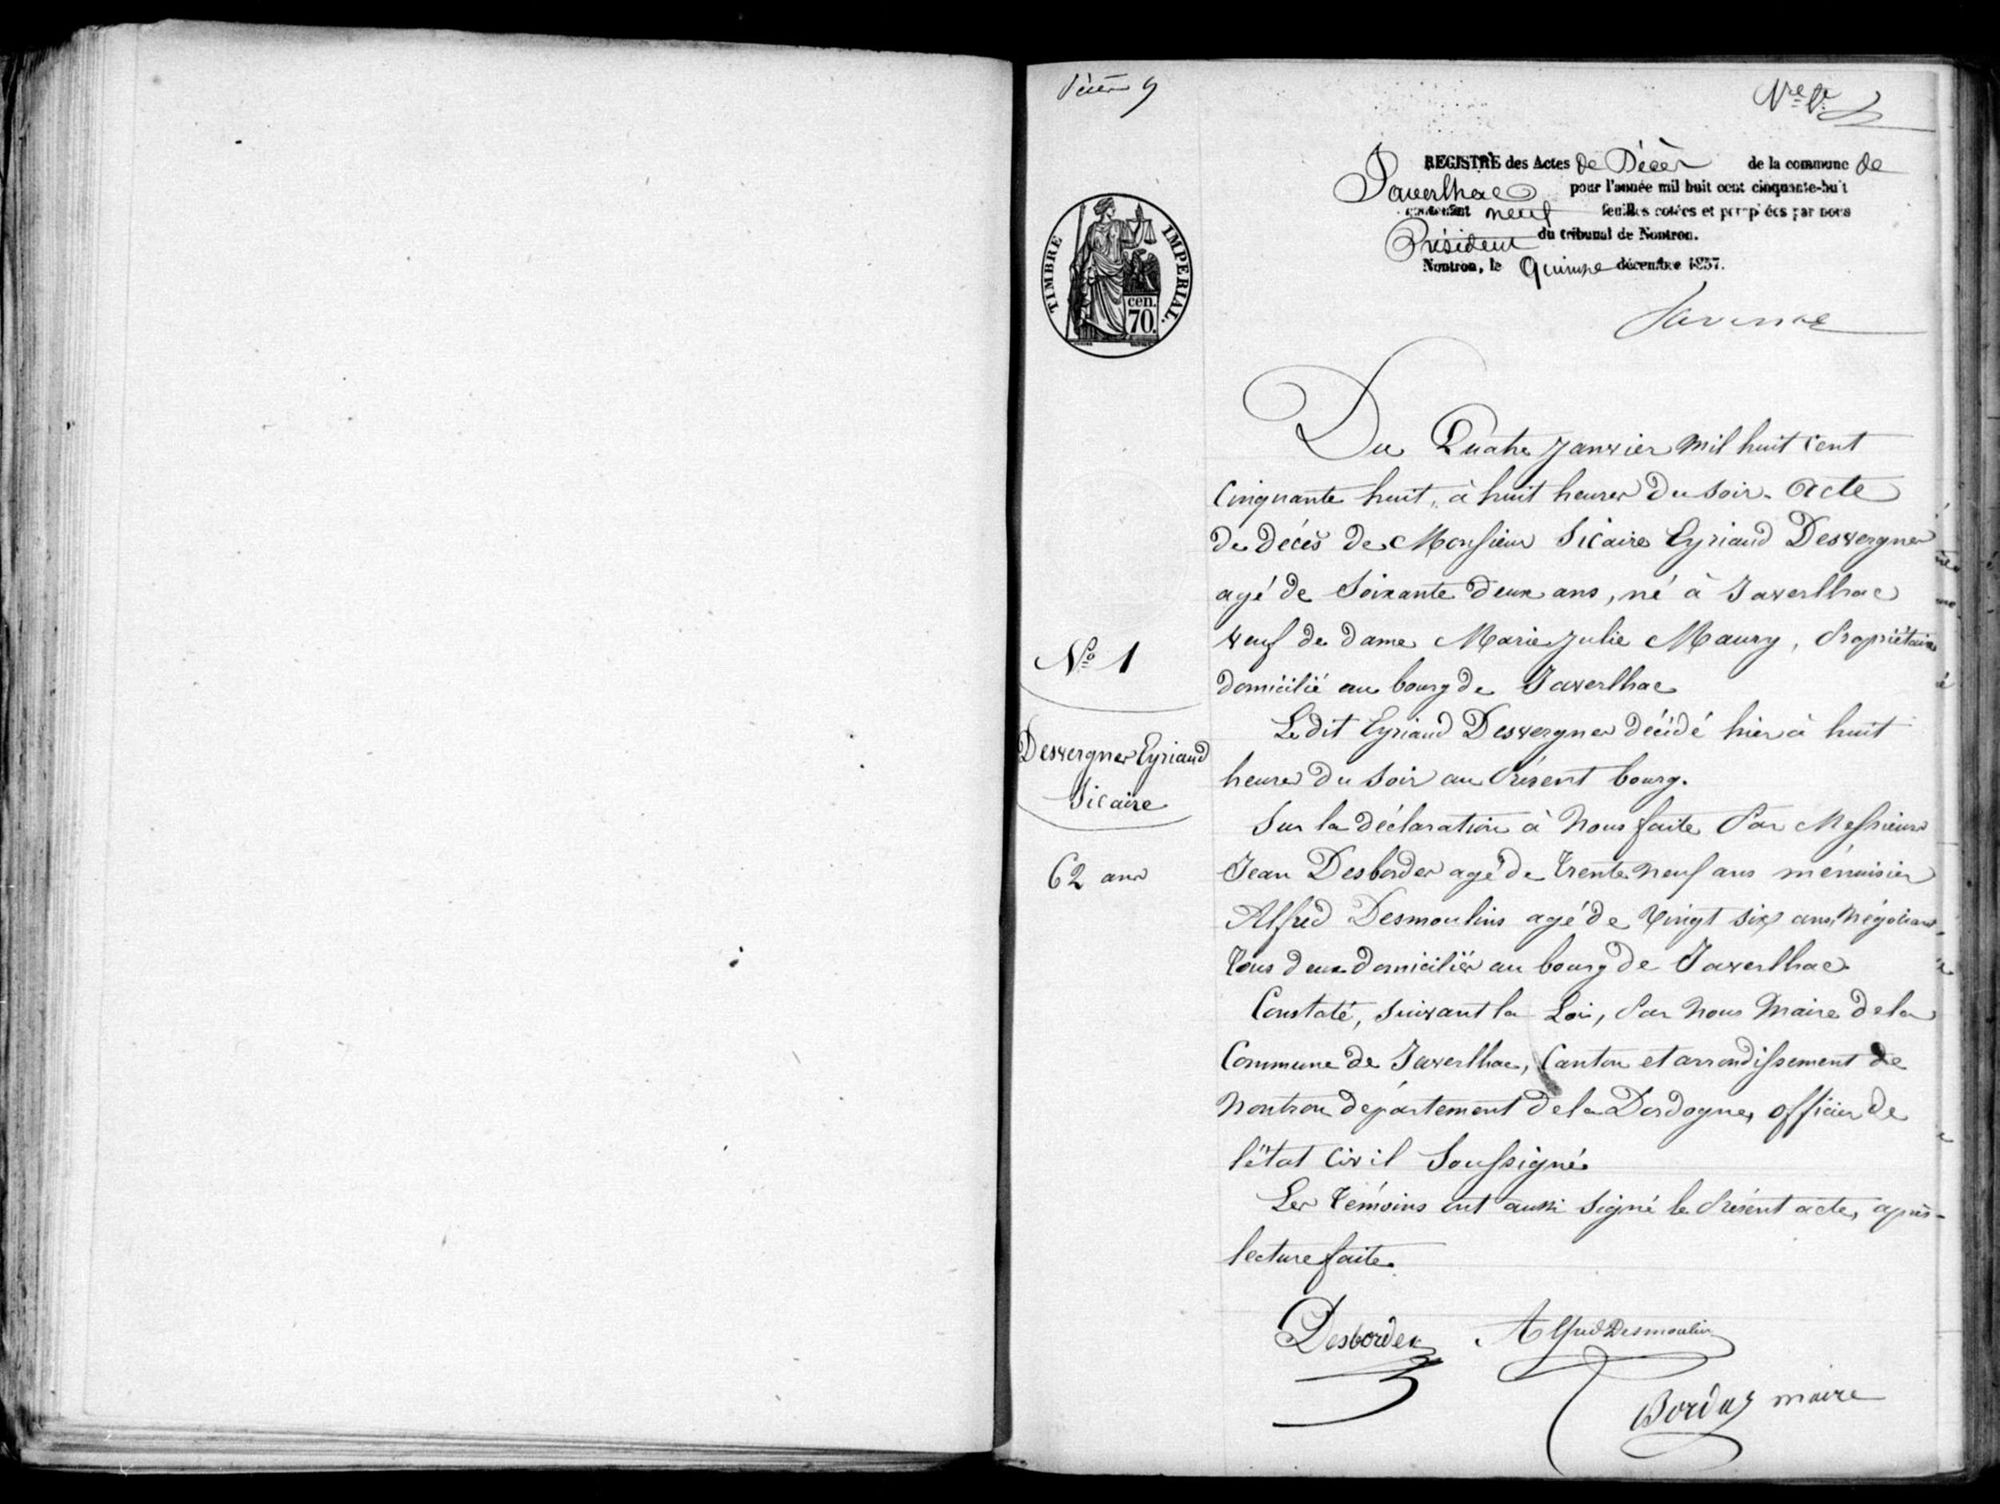 REGISTRE des Actes de Décès de la commune de
Javerlhac pour l'année mil huit cent cinquante-huit
contenant neuf feuilles cotées et paraphées par nous
Président du tribunal de Nontron.
Nontron, le Quinze décembre 1857.
TIMBRE IMPERIAL.
cen.
70.
Du Quatre Janvier mil huit cent
Cinquante huit, à huit heures du soir. Acte
de décès de Monsieur Sicaire Eyriaud Desvergnes
agé de Soixante deux ans, né à Javerlhac
veuf de dame Marie Julie Maury, Propriétaire
domicilié au bourg de Javerlhac
Ledit Eyriaud Desvergnes décédé hier à huit
heures du soir au Présent bourg.
Sur la déclaration à Nous faite Par Messieurs
Jean Desbordes agé de trente neuf ans ménuisier
Alfred Desmoulins agé de Vingt six ans, Négociant
tous deux domiciliés au bourg de Javerlhac
Constaté, suivant la Loi, Par Nous Maire de la
Commune de Javerlhac, Canton et arrondissement de
Nontron département de la Dordogne, officier de
l'état Civil Soussigné
Les témoins ont aussi signé le Présent acte, après
lecture faite.
No 1
Desvergnes Eyriaud
Sicaire
62 ans
Desbordes Alfred Desmoulins
Bordas maire